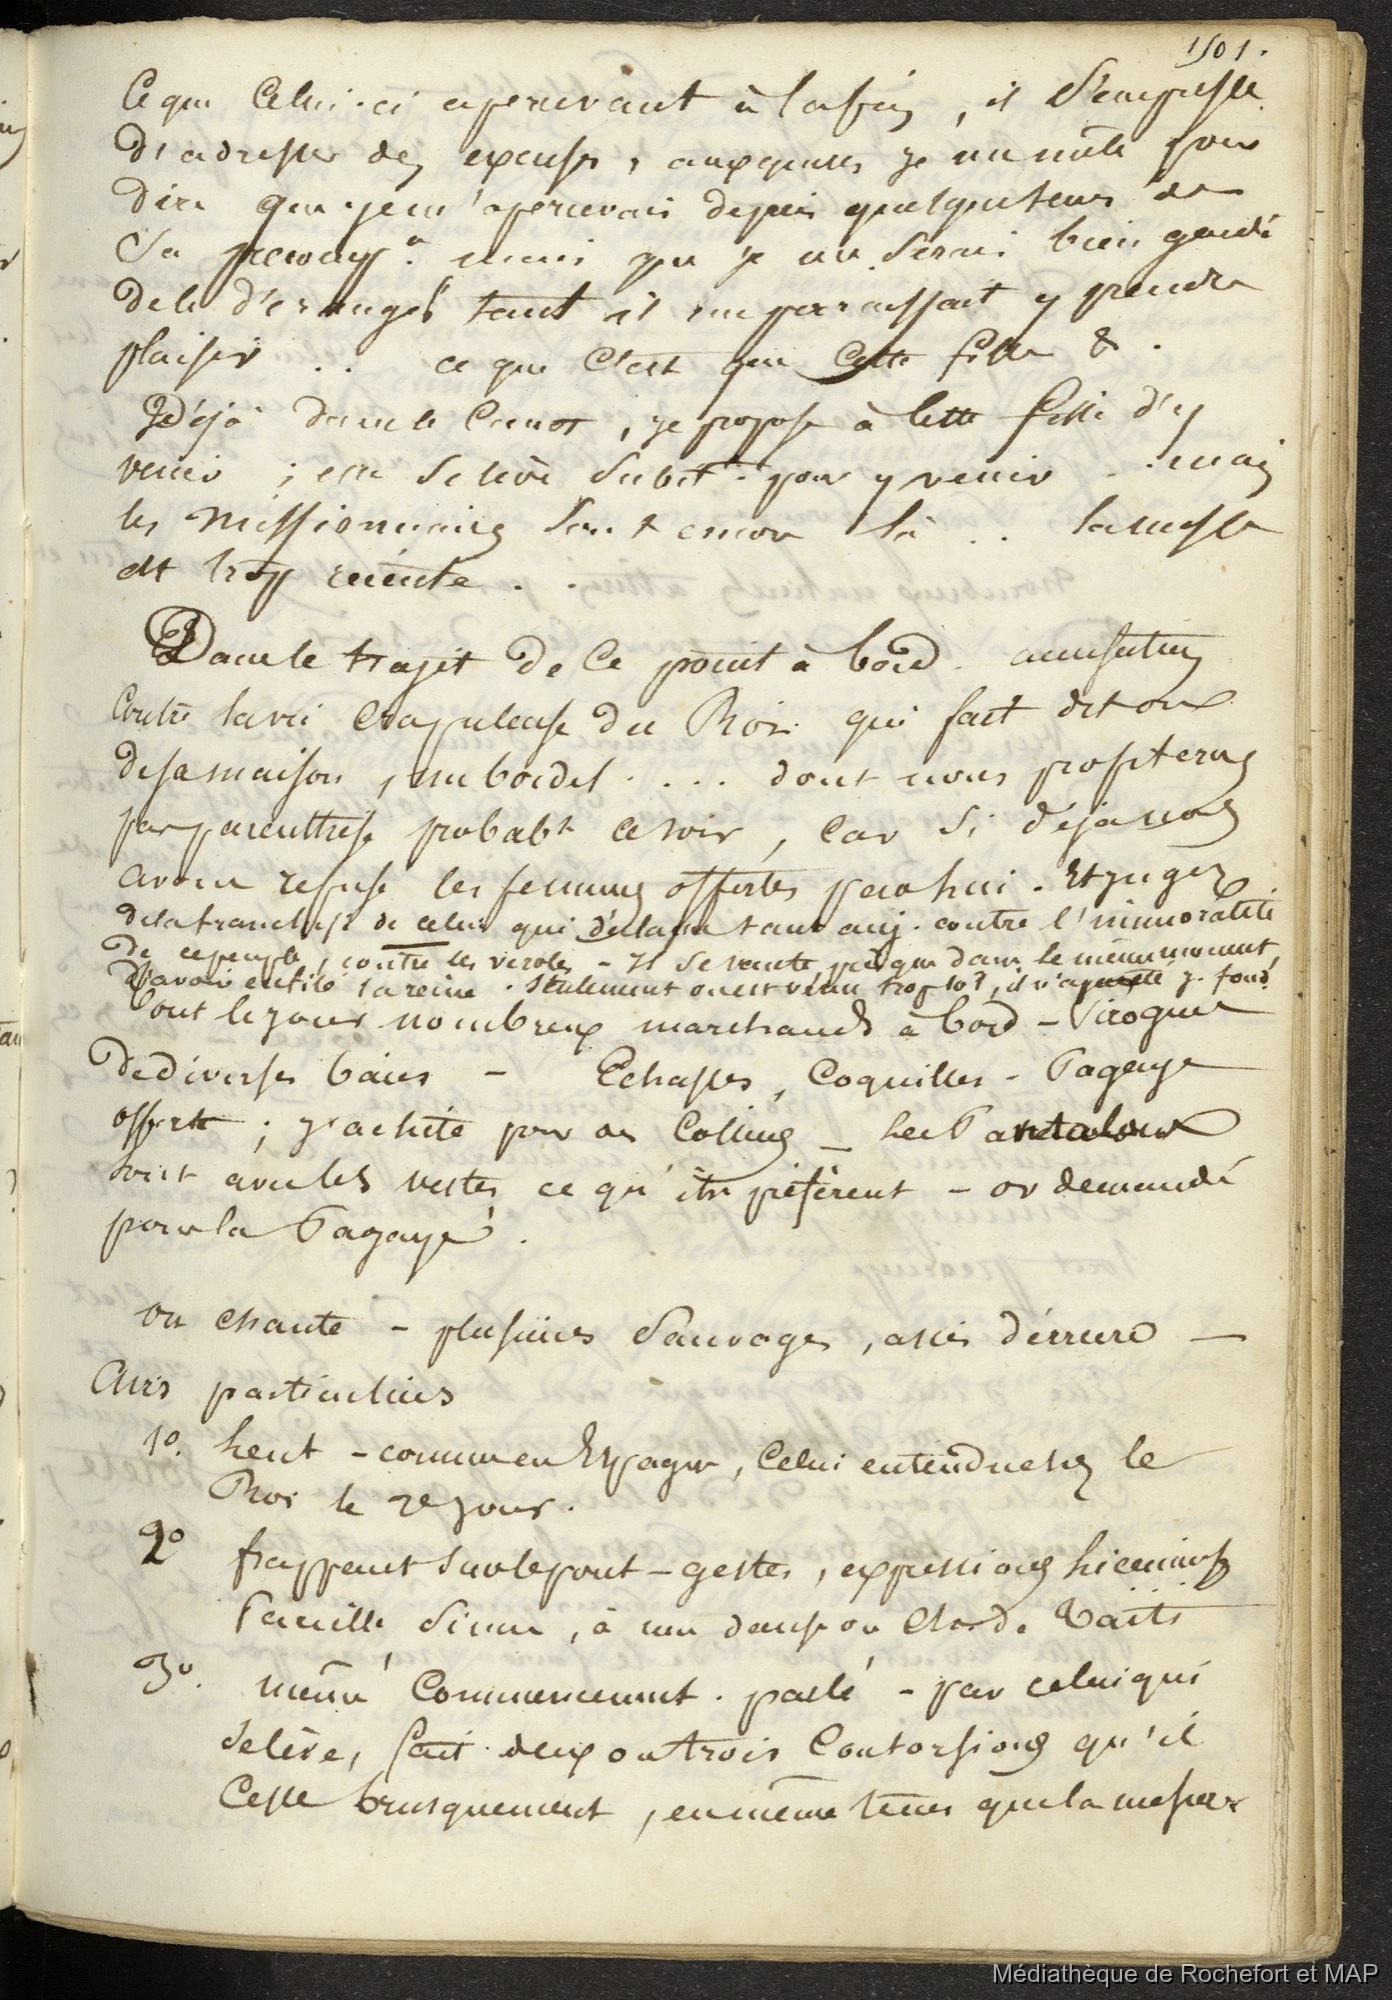 1501.
Ce que celui-ci apercevant à la fin, il s'empresse
d'adresser des excuses, auxquelles je me mêle pour
dire que je m'apercevais depuis quelque tems de
sa mais que je me serais bien gardé
de le d'érangér tant il me parraissait y prendre
plaisir . . ce que c'est que cette fille &.
Déjà dans le canot, je propose à cette fille d'y
venir ; elle se lève subit.t pour y venir . . mais
les missionnaires sont encore là . . la messe
est trop récente . .
Dans le trajet de ce point à bord
contre la vie crapuleuse du Roi qui fait dit on
de sa maison, un bordel . . . . dont nous profiterons
par parenthèse probabt ce soir, car si déjà nous
avons refusé les femmes offertes par lui. Et jugez
de la franchise de celui qui déclame tant auj. contre l'immoralité
de ce peuple, contre les veroles - Il se vante, presque dans le même moment,
d'avoir enfilé la reine . Seulement on est venu trop tot, il n'a
Tout le jour nombreux marchands à bord - Pirogues
de diverses baies - Echasses, Coquilles - Pagaye
offerte ; j'achète pour des Colliers - Les Pantalons
sont avec les vestes ce qu'ils préfèrent - on demandé
pour la Pagaye .
on chante - plusieurs sauvages, assis dérrière -
Airs particuliers
1o. lent - comme en Espagne, celui entendu chez le
Roi le 2e jour.
2o frappent sur le pont - gestes, expressions
, à une danse ou Chod. Taïti
3o. même commencement . parlé - par celui qui
se lève, fait deux ou trois contorsions qu'il
cesse brusquement, en même tems que la mesure
Médiathèque de Rochefort et MAP